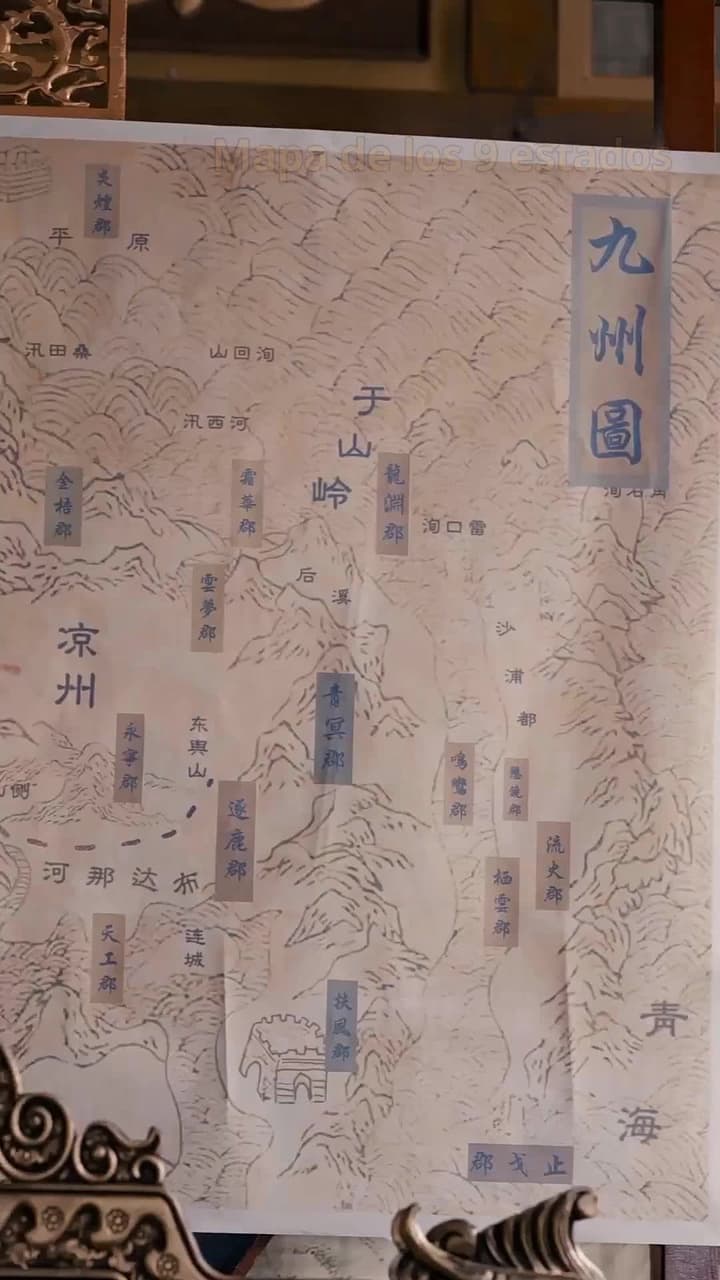 Mapa de los 9 estados
九州圖
炎煌郡
平原
桑田汛
洵回山
河西汛
于山岭
金梧郡
霜華郡
龍淵郡
雷口洵
雲夢郡
后溪
沙浦都
凉州
永寧郡
东舆山
青冥郡
鳴鸞郡
流火郡
逐鹿郡
栖雲郡
布达那河
天工郡
连城
扶風郡
青海
止戈郡